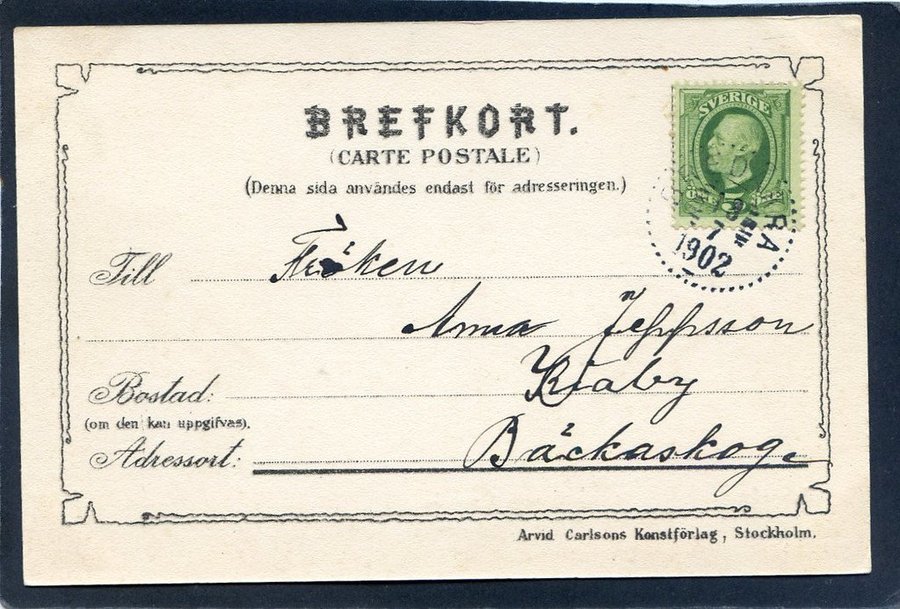 BREFKORT.
(CARTE POSTALE)
(Denna sida användes endast för adresseringen.)
SVERIGE
1902
Till Fröken
Anna Jeppsson
Bostad: Kiaby
(om den kan uppgifvas).
Adressort: Bäckaskog
Arvid Carlsons Konstförlag, Stockholm.